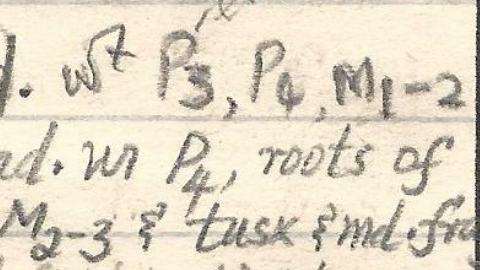 . wt P3, P4, M1-2
nd. w P4, roots of
M2-3 & tusk & md. fra